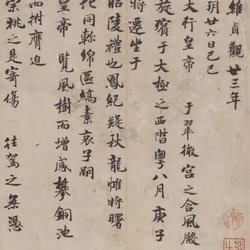 維貞觀廿三年
朔廿六日己巳
大行皇帝 于翠微宮之含風殿
旋殯于大極之西階粵八月庚子
將遷坐于
昭陵禮也鳳紀疑秋龍帷將曙
化同軒綿區縞素哀子嗣
皇帝 覽風樹而增感攀銅池
而擗膺迫
宗祧之是寄傷 往駕之無憑